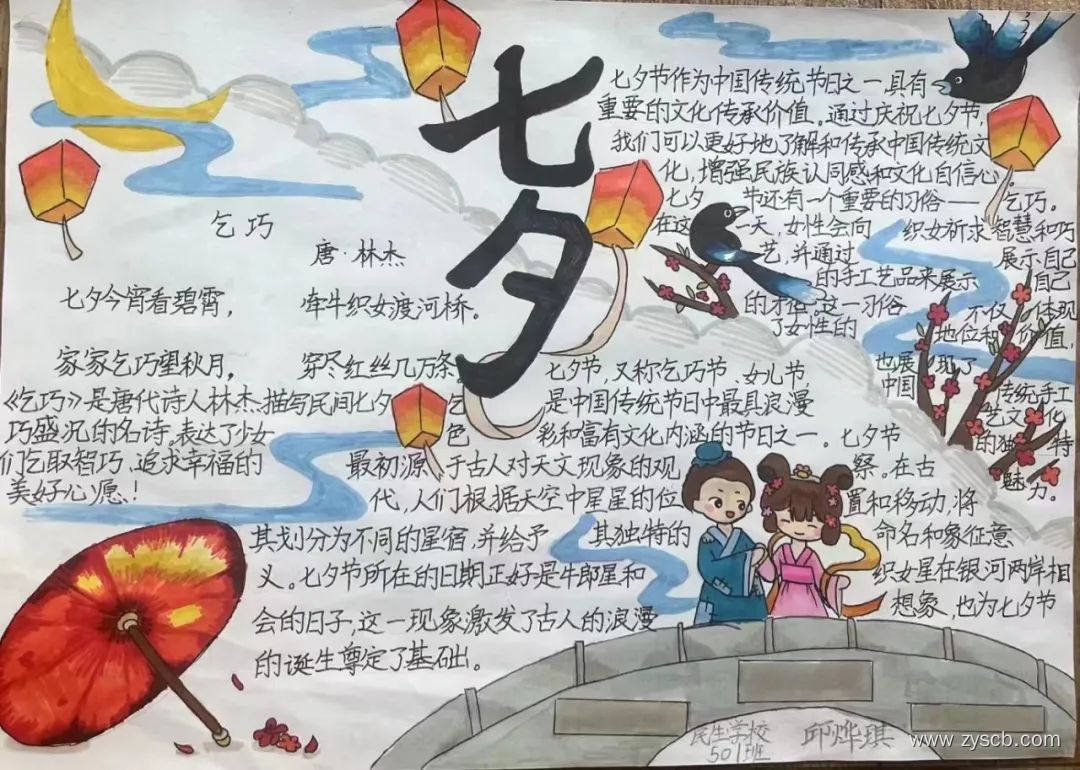 七夕
乞巧
唐·林杰
七夕今宵看碧霄, 牵牛织女渡河桥。
家家乞巧望秋月, 穿尽红丝几万条。
《乞巧》是唐代诗人林杰描写民间七夕乞
巧盛况的名诗,表达了少女
们乞取智巧、追求幸福的
美好心愿!
七夕节作为中国传统节日之一具有
重要的文化传承价值。通过庆祝七夕节,
我们可以更好地了解和传承中国传统文
化,增强民族认同感和文化自信心。
七夕 节还有一个重要的习俗——乞巧。
在这 一天,女性会向 织女祈求智慧和巧
艺,并通过 展示自己
的手工艺品来展示 自己
的才 。这一习俗 不仅 体现
了女性的 地位和 价值,
也展 现了
中国 传统手工
艺文化
的独特
魅力。
七夕节,又称乞巧节、女儿节,
是中国传统节日中最具浪漫
色 彩和富有文化内涵的节日之一。七夕节
最初源 于古人对天文现象的观 察。在古
代,人们根据天空中星星的位 置和移动,将
其划分为不同的星宿,并给予 其独特的 命名和象征意
义。七夕节所在的日期正好是牛郎星和 织女星在银河两岸相
会的日子,这一现象激发了古人的浪漫 想象,也为七夕节
的诞生尊定了基础。
民生学校
501班
邱烨琪
www.zyscb.com